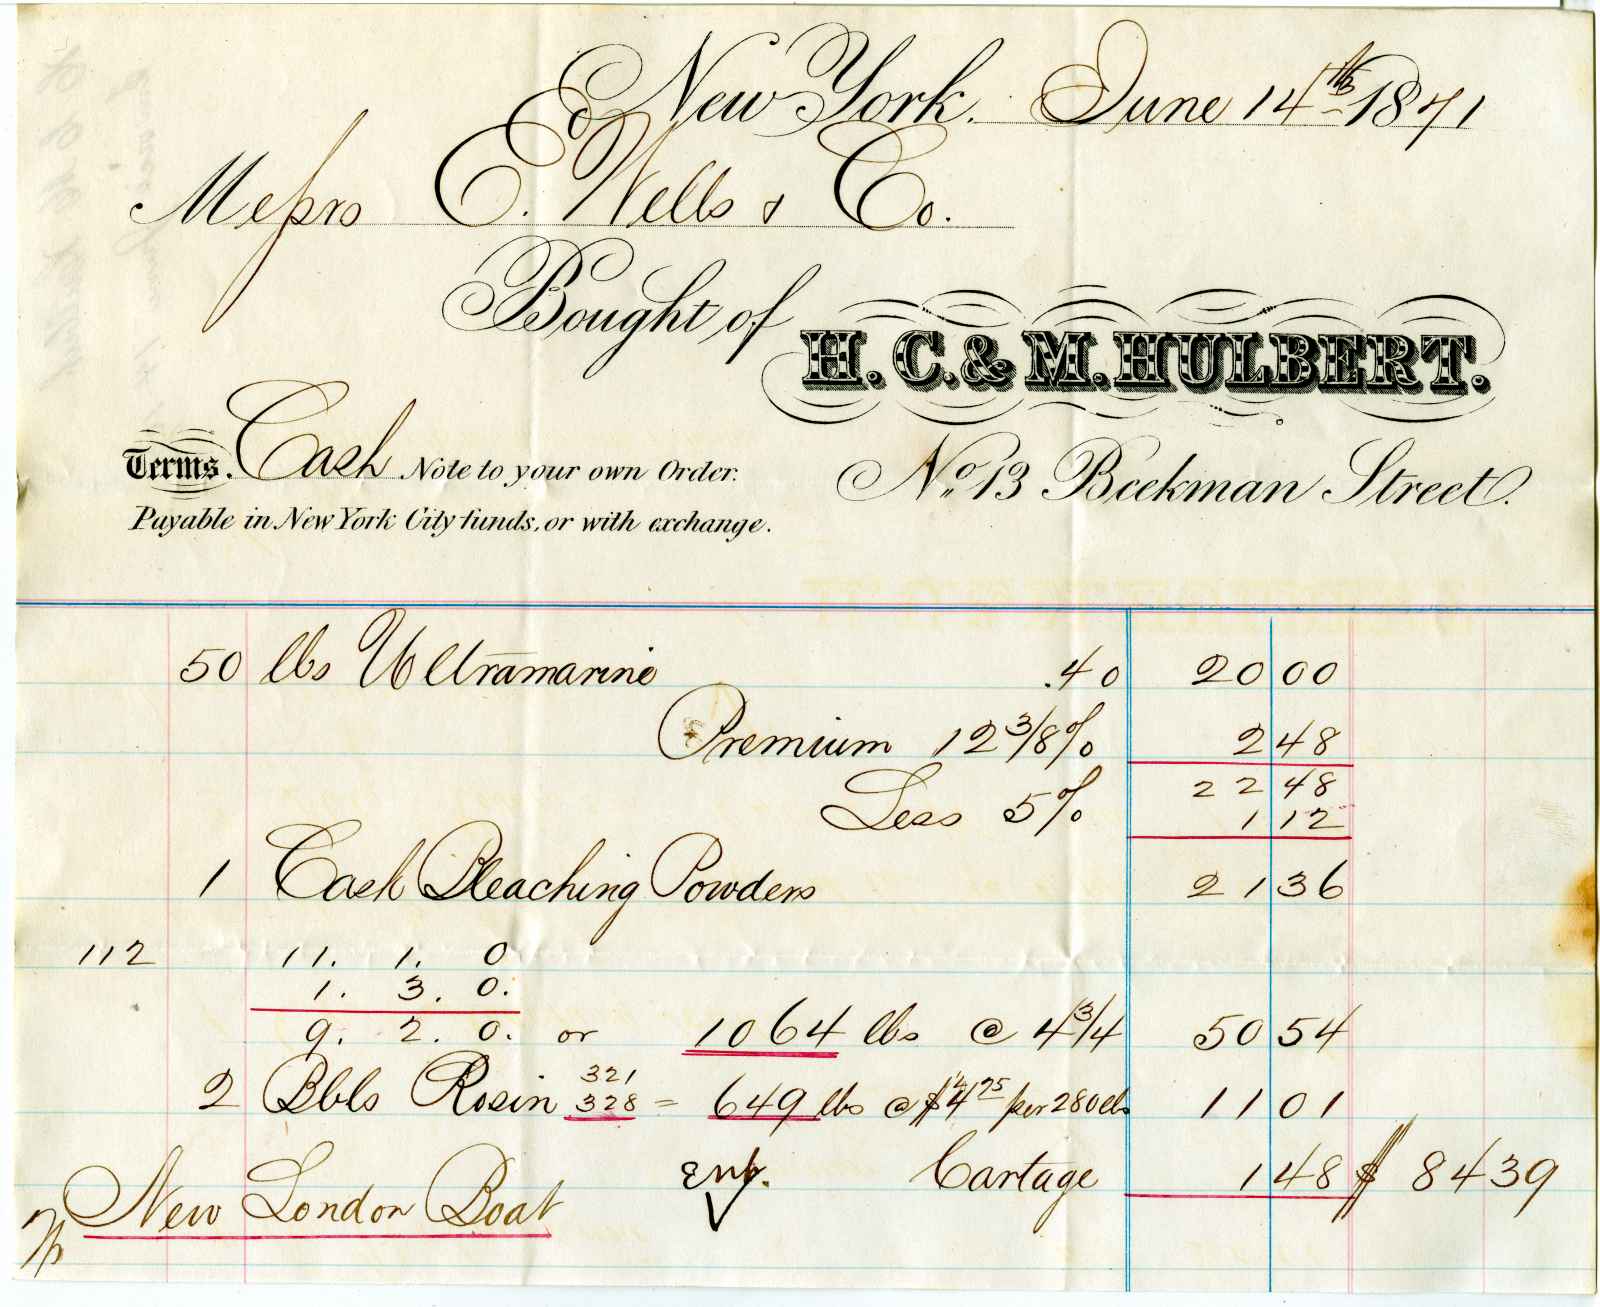 New York. June 14th 1871
Messrs E. Wells & Co.
Bought of H. C. & M. HULBERT.
Terms. Cash Note to your own Order. No. 13 Beekman Street.
Payable in New York City funds, or with exchange.
50 lbs Ultramarine .40 20 00
Premium 12 3/8 % 2 48
22 48
Less 5 % 1 12
1 Cask Bleaching Powders 21 36
112 11. 1. 0
1. 3. 0.
9. 2. 0. or 1064 lbs @ 4 3/4 50 54
321
2 Bbls Rosin 328 = 649 lbs @ $4 75 per 280 lbs 11 01
Cartage 1 48 $ 84 39
New London Boat